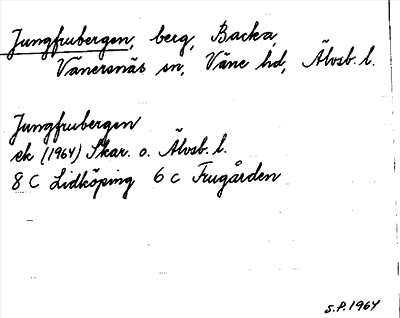 Jungfrubergen, berg, Backa,
Vänersnäs sn, Väne hd, Älvsb. l.
Jungfrubergen
ek (1964) Skar. o. Älvsb. l.
8 C Lidköping 6 c Frugården
S.P. 1964